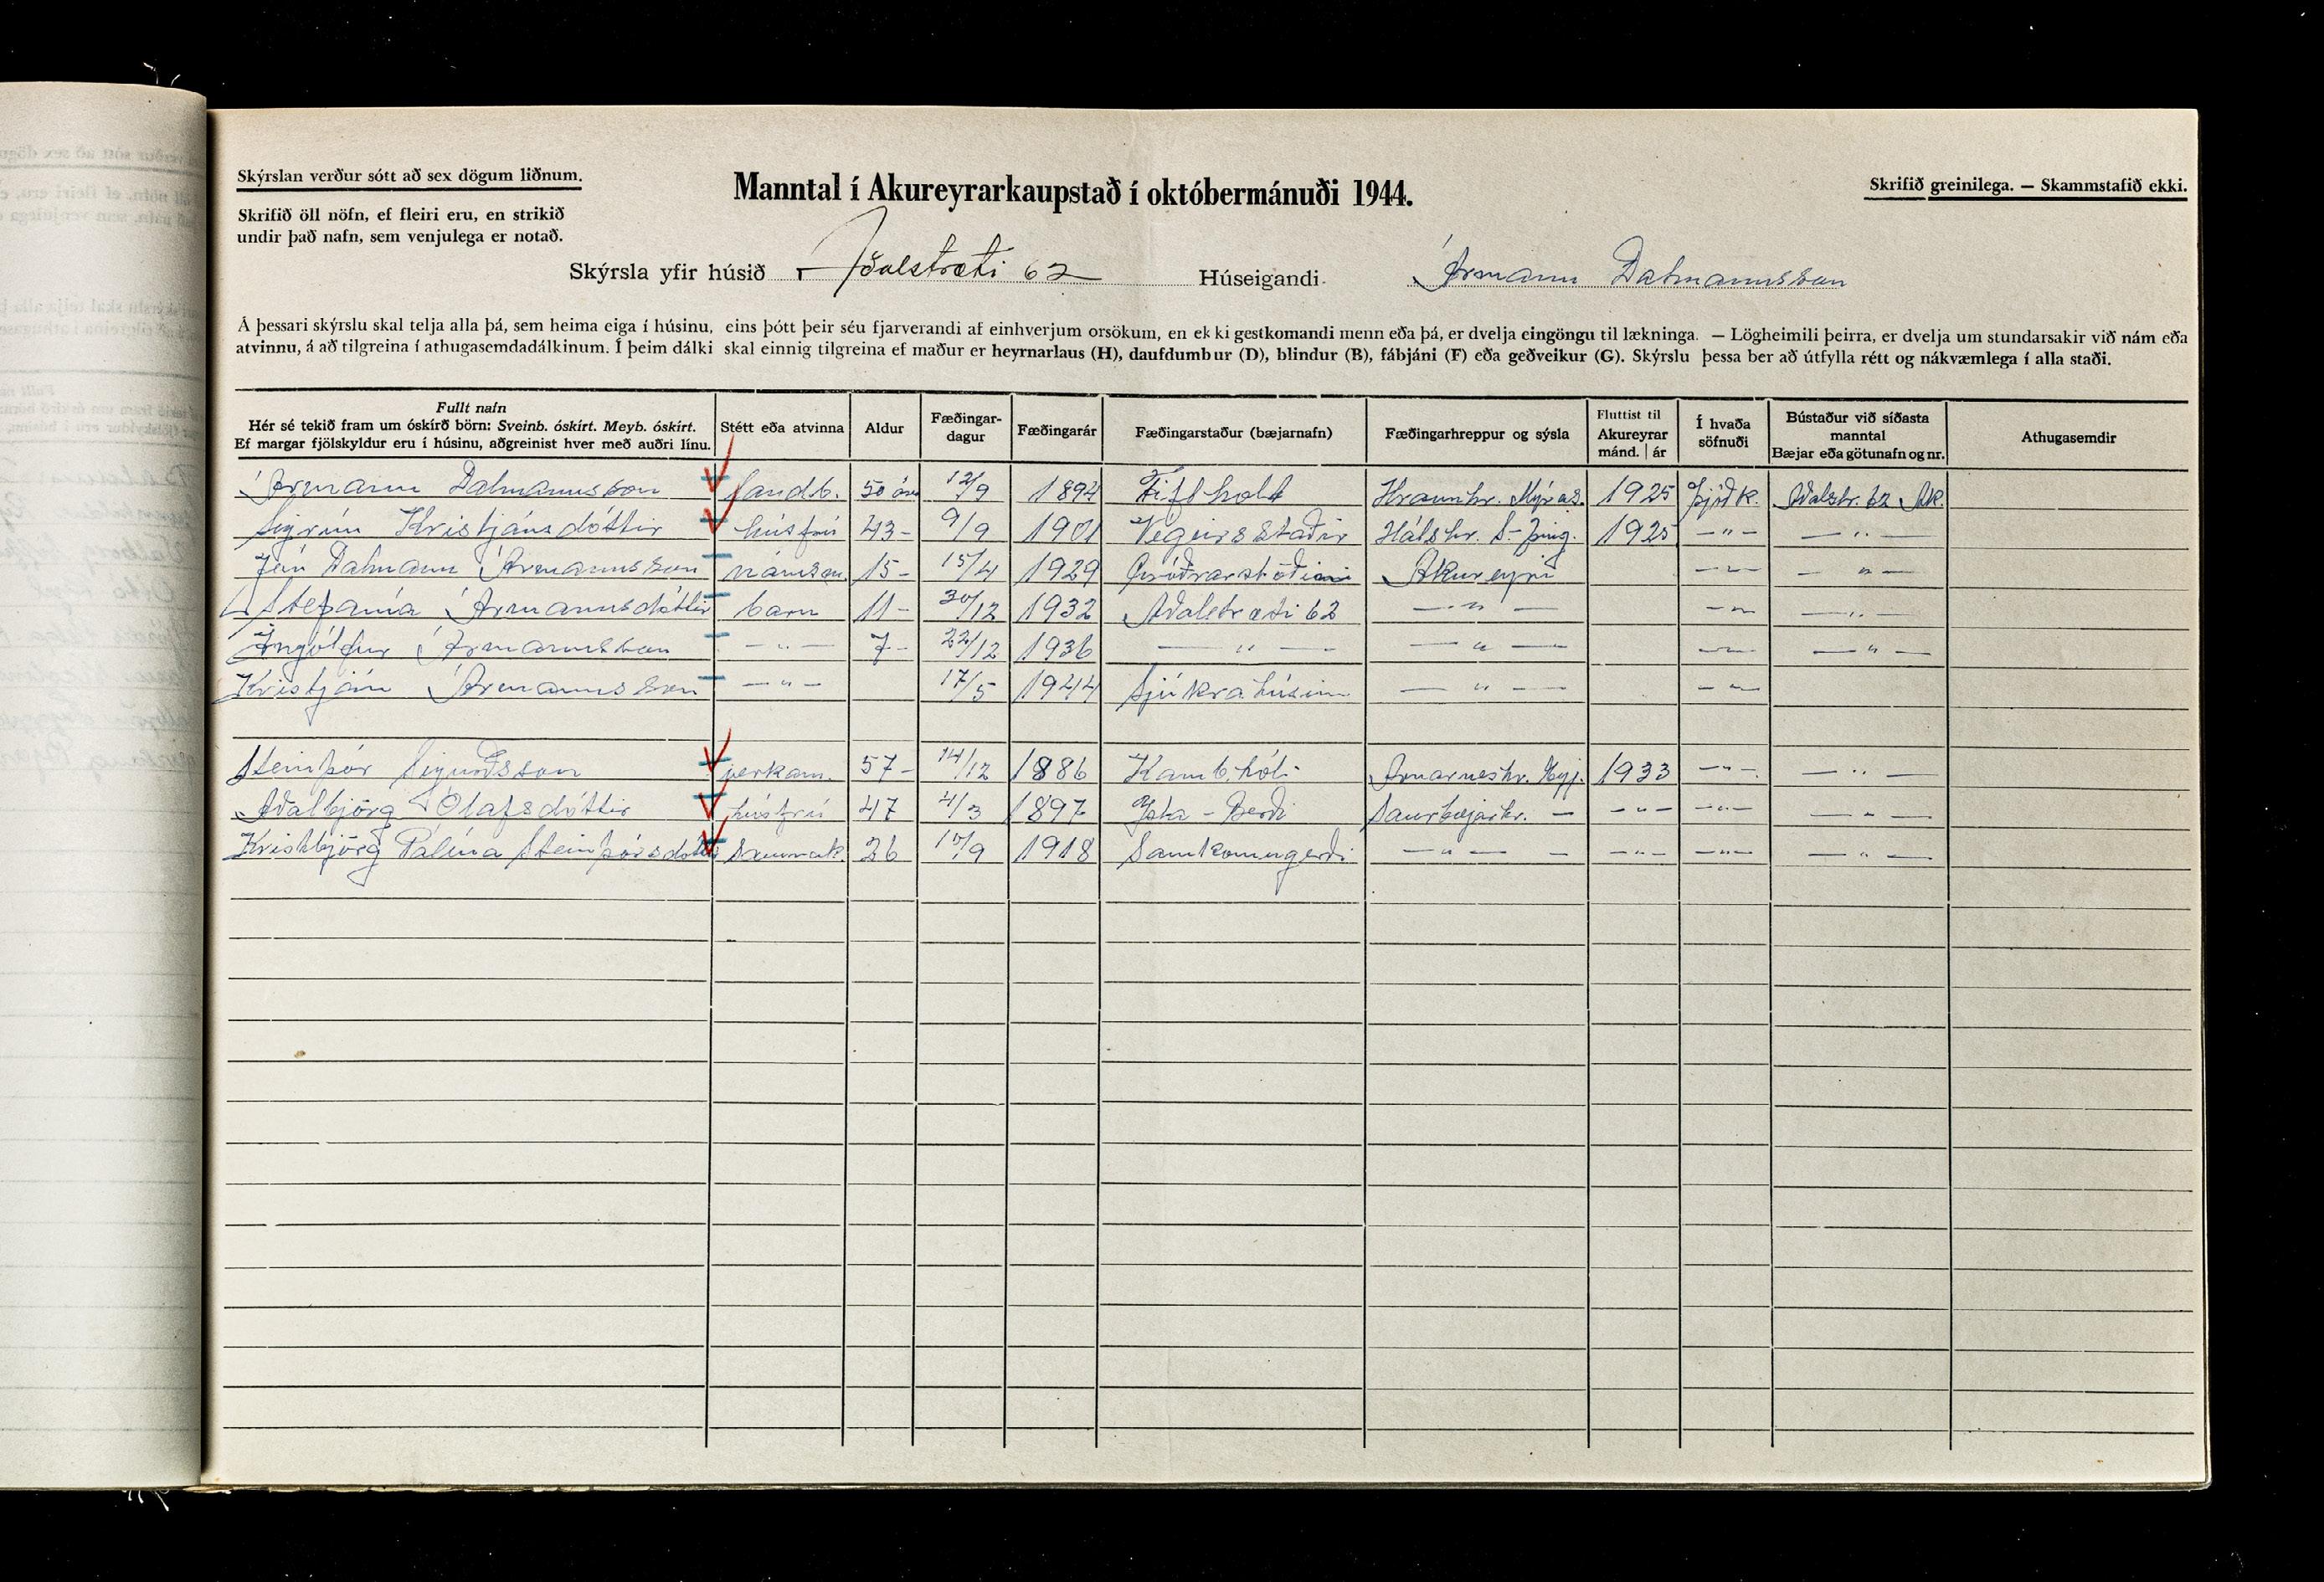 Skýrslan verður sótt að sex dögum liðnum.
Manntal í Akureyrarkaupstað í októbermánuði 1944.
Skrifið greinilega. — Skammstafið ekki.
Skrifið öll nöfn, ef fleiri eru, en strikið
undir það nafn, sem venjulega er notað.
Skýrsla yfir húsið Aðalstræti 62 Húseigandi Ármann Dalmannsson
Á þessari skýrslu skal telja alla þá, sem heima eiga í húsinu, eins þótt þeir séu fjarverandi af einhverjum orsökum, en ekki gestkomandi menn eða þá, er dvelja eingöngu til lækninga. — Lögheimili þeirra, er dvelja um stundarsakir við nám eða
atvinnu, á að tilgreina í athugasemdadálkinum. Í þeim dálki skal einnig tilgreina ef maður er heyrnarlaus (H), daufdumbur (D), blindur (B), fábjáni (F) eða geðveikur (G). Skýrslu þessa ber að útfylla rétt og nákvæmlega í alla staði.
Fullt nafn
Hér sé tekið fram um óskírð börn: Sveinb. óskírt. Meyb. óskírt.
Ef margar fjölskyldur eru í húsinu, aðgreinist hver með auðri línu.
Stétt eða atvinna
Aldur
Fæðingar-
dagur
Fæðingarár
Fæðingarstaður (bæjarnafn)
Fæðingarhreppur og sýsla
Fluttist til
Akureyrar
mánd. | ár
Í hvaða
söfnuði
Bústaður við síðasta
manntal
Bæjar eða götunafn og nr.
Athugasemdir
Ármann Dalmannsson 50 ára 12/9 1894 Fíflholt Hraunhr. Mýras. 1925 Þjóðk. Aðalstr. 62 Ak.
Sigrún Kristjánsdóttir húsfrú 43 - 9/9 1901 Végeirsstaðir Hálshr. S-Þing. 1925 — " — — " —
Jón Dalmann Ármannsson námsm. 15 - 15/4 1929 Gróðrarstöðinni Akureyri — " — — " —
Stefanía Ármannsdóttir barn 11 - 30/12 1932 Aðalstræti 62 — " — — " — — " —
Ingólfur Ármannsson — " — 7 - 22/12 1936 — " — — " — — " — — " —
Kristján Ármannsson — " — 17/5 1944 Sjúkrahúsinu — " — — " —
Steinþór Sigurðsson verkam. 57 - 14/12 1886 Kambhóli Arnarneshr. Eyj. 1933 — " — — " —
Aðalbjörg Ólafsdóttir húsfrú 47 4/3 1897 Saurbæjarhr. — — " — — " — — " —
Kristbjörg Pálína Steinþórsdóttir 26 1918 Samkomugerði — " — — — " — — " — — " —